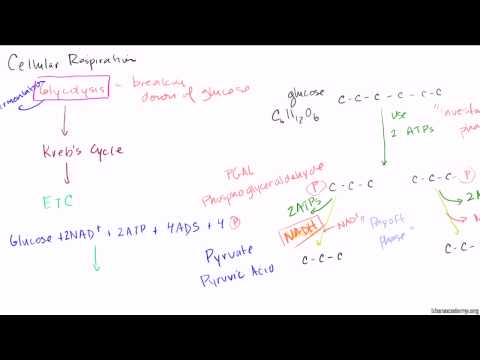 Cellular Respiration
Glycolysis - breaking
down of glucose
Kreb's Cycle
ETC
Glucose + 2NAD+ + 2ATP + 4ADS + 4 P
glucose
C6H12O6
C-C-C-C-C-C
use
2 ATPs
PGAL
Phosphoglyceraldehyde
P C-C-C
C-C-C-P
2ATPs
NADH
NAD+
"Payoff
Phase"
C-C-C
C-C-C
Pyruvate
Pyruvic Acid
khanacademy.org